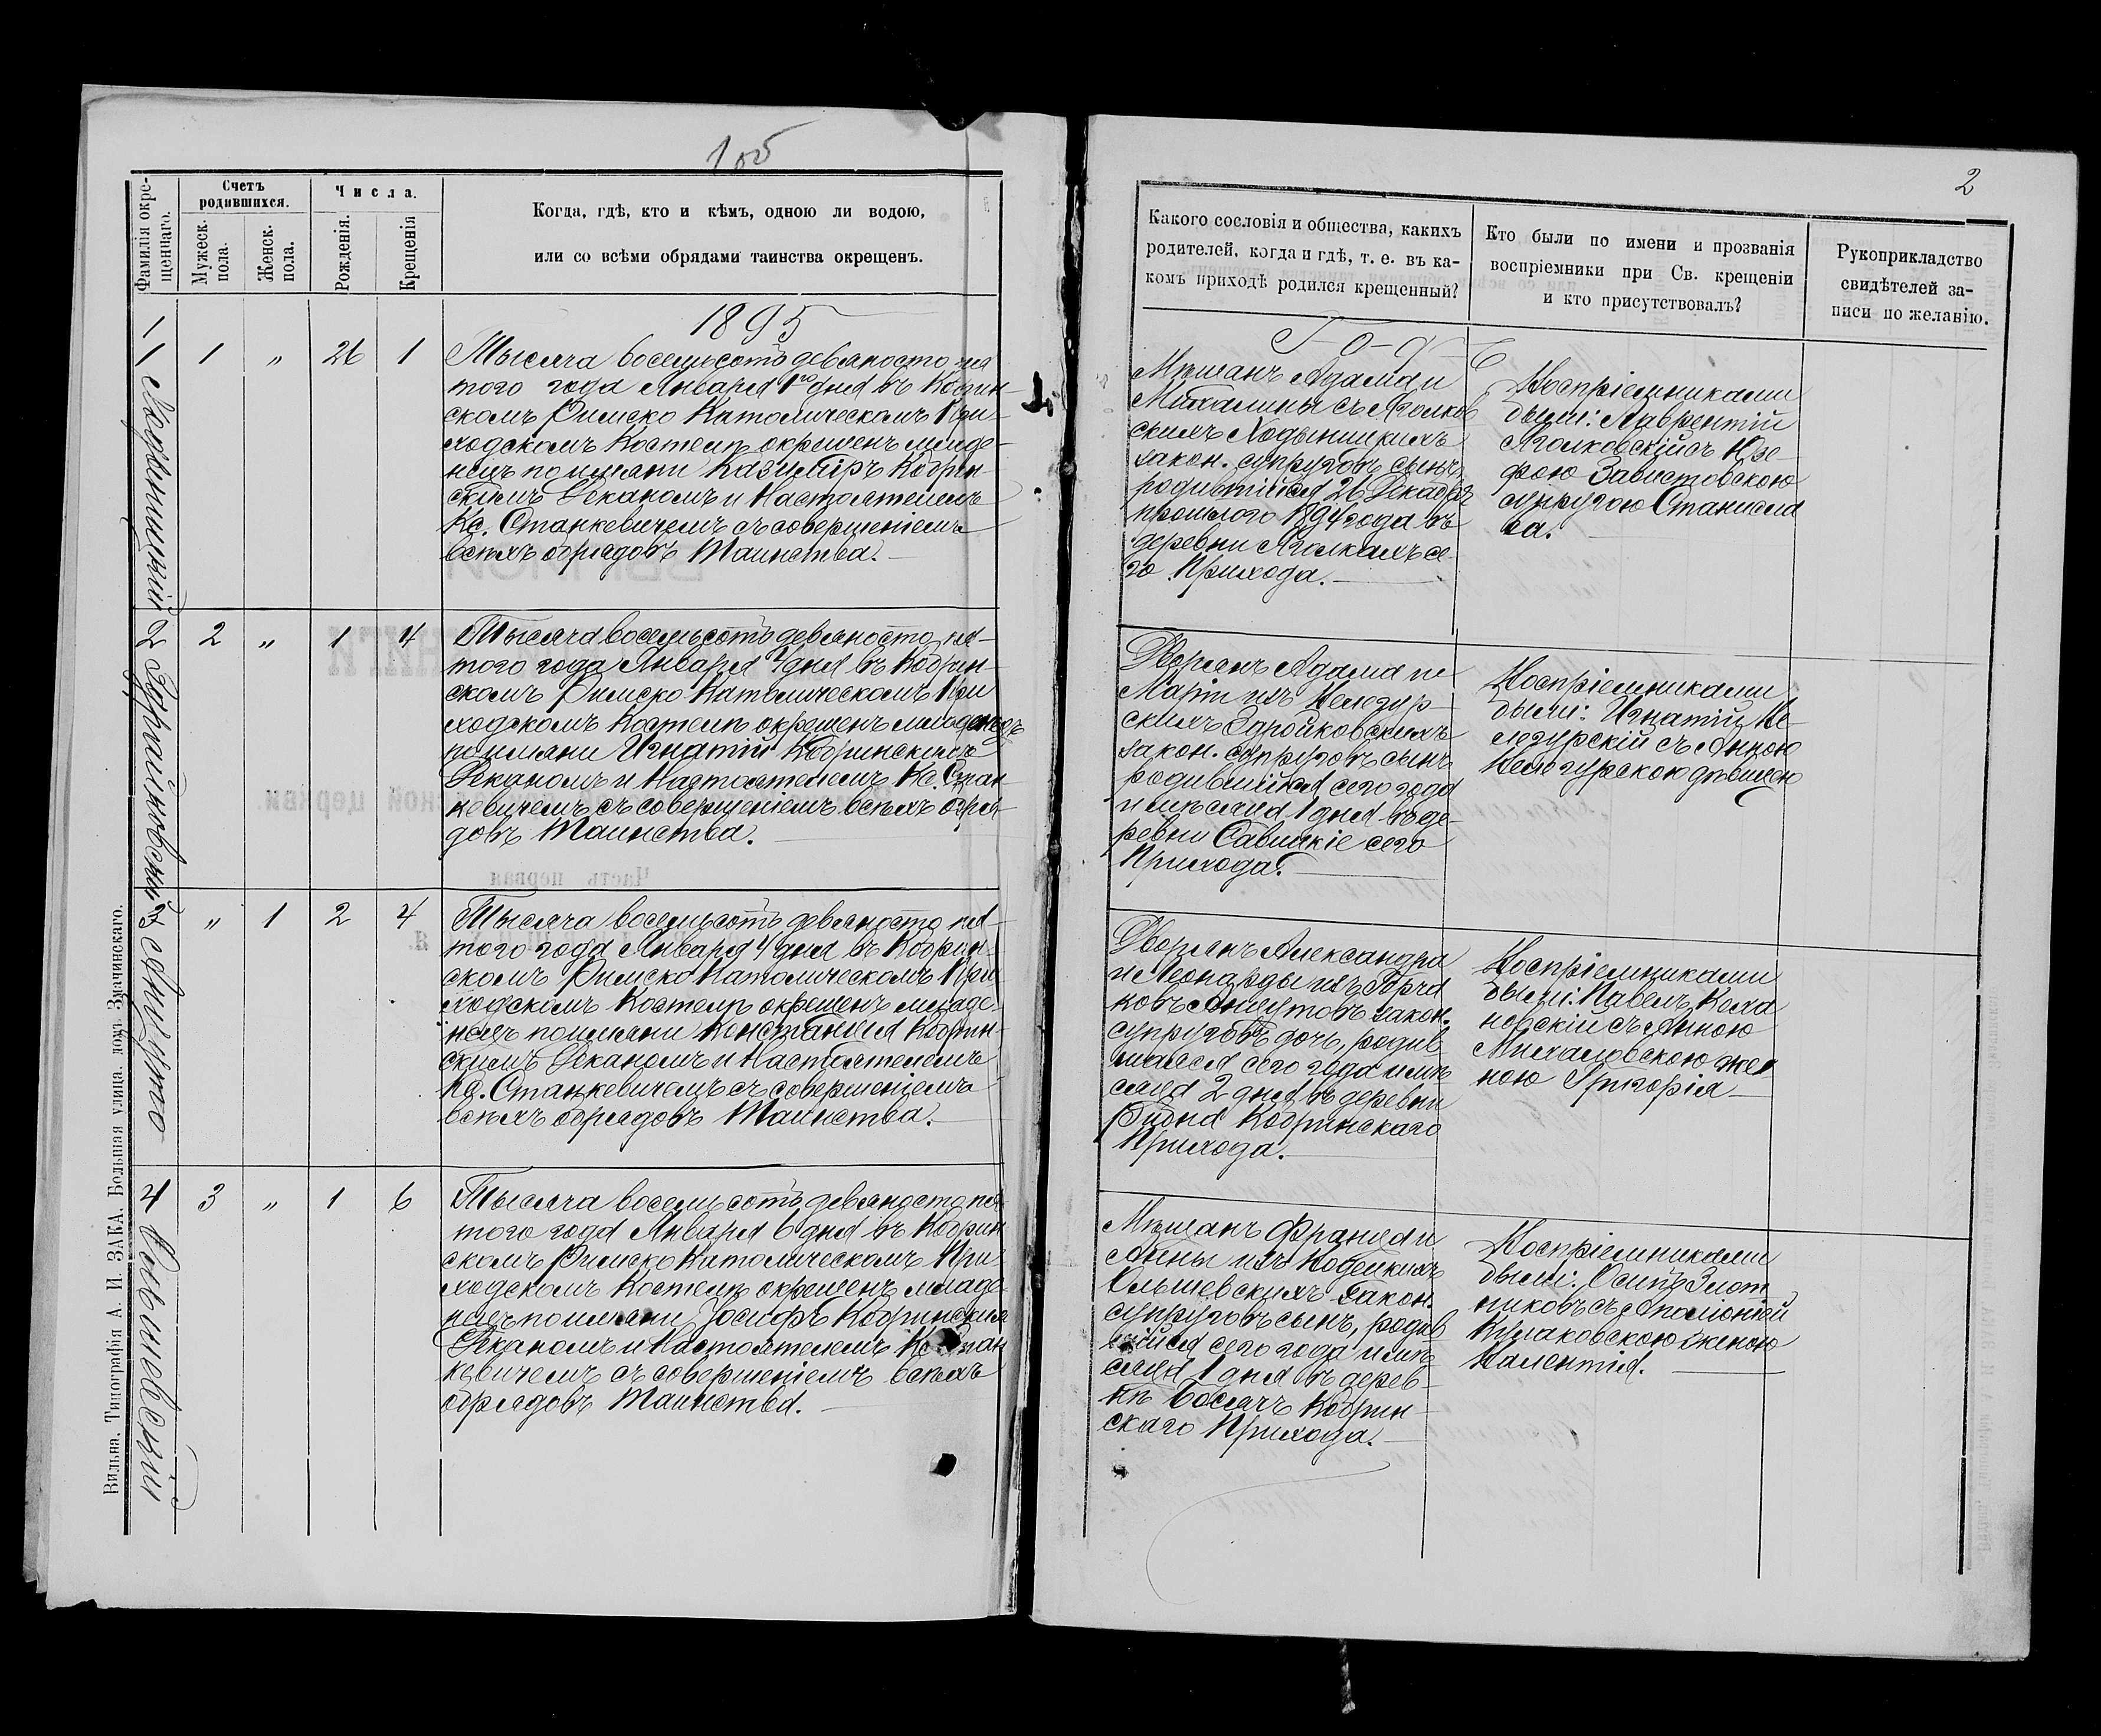 105
Фамилія окре-
щеннаго.
Счетъ
родившихся.
Мужеск.
пола.
Женск.
пола.
Числа.
Рожденія.
Крещенія
Когда, гдѣ, кто и кѣмъ, одною ли водою,
или со всѣми обрядами таинства окрещенъ.
1895
1
Ходыницкій
1 „ 26 1
Тысяча восемьсотъ девяносто пя
того года Января 1го дня въ Кобрин-
скомъ Римско Католическомъ При
ходскомъ Костелѣ окрещенъ младе-
нецъ по имени Казиміръ Кобрин
скимъ Деканомъ и Настоятелемъ
Кс. Станкевичемъ съ совершеніемъ
всѣхъ обрядовъ Таинства.
2
2 „ 1 4
Тысяча восемьсотъ девяносто пя-
того года Января 4 дня въ Кобрин-
скомъ Римско Католическомъ При
ходскомъ Костелѣ окрещенъ младенецъ
по имени Игнатій Кобринскимъ
Деканомъ и Настоятелемъ Кс. Стан
кевичемъ съ совершеніемъ всѣхъ обря
довъ Таинства.
3 Янушто
„ 1 2 4
Тысяча восемьсотъ девяносто пя
того года Января 4 дня въ Кобрин-
скомъ Римско Католическомъ При
ходскомъ Костелѣ окрещенъ младе-
нецъ по имени Констанція Кобрин-
скимъ Деканомъ и Настоятелемъ
Кс. Станкевичемъ съ совершеніемъ
всѣхъ обрядовъ Таинства.
4 Ольшевскій
3 „ 1 6
Тысяча восемьсотъ девяносто пя
того года Января 6 дня въ Кобрин
скомъ Римско Католическомъ При
ходскомъ Костелѣ окрещенъ младе
нецъ по имени Іосифъ Кобринскимъ
Деканомъ и Настоятелемъ Кс. Стан
кевичемъ съ совершеніемъ всѣхъ
обрядовъ Таинства.
Вильна. Типографія А. И. ЗАКА. Большая улица. домъ. Значинскаго.
2
Какого сословія и общества, какихъ
родителей, когда и гдѣ, т. е. въ ка-
комъ приходѣ родился крещенный?
Кто были по имени и прозванія
воспріемники при Св. крещеніи
и кто присутствовалъ?
Рукоприкладство
свидѣтелей за-
писи по желанію.
Годъ
Мѣщанъ Адама и
Михалины съ
скихъ Ходыницкихъ
закон. супруговъ сынъ
родившійся 26 Декабря
прошлого 1894 года въ
деревни се-
го Прихода.
Воспріемниками
были: Лаврентій
съ Юзе
фою Завистовскою
супругою Станисла
ва.
Дворянъ Адама и
Маріи изъ
скихъ
закон. супруговъ сынъ
родившійся сего года
и мѣсяца 1 дня въ де-
ревни Савицкіе сего
Прихода.
Воспріемниками
были: Игнатій
съ Анною
дѣвицею
Дворянъ Александра
и Леонарды изъ
закон.
супруговъ дочь, родив
шаяся сего года и мѣ
сяца 2 дня въ деревни
Кобринскаго
Прихода.
Воспріемниками
были: Павелъ
съ Анною
Михаловскою же
ною Григорія
Мѣщанъ Франца и
Анны изъ
Ольшевскихъ закон.
супруговъ сынъ, родив
шійся сего года и мѣ
сяца 1 дня въ дерев-
нѣ Босячъ Кобрин
скаго Прихода.
Воспріемниками
были: Осипъ Злот
никовъ съ Аполіоніей
Кулаковскою женою
Валентія.